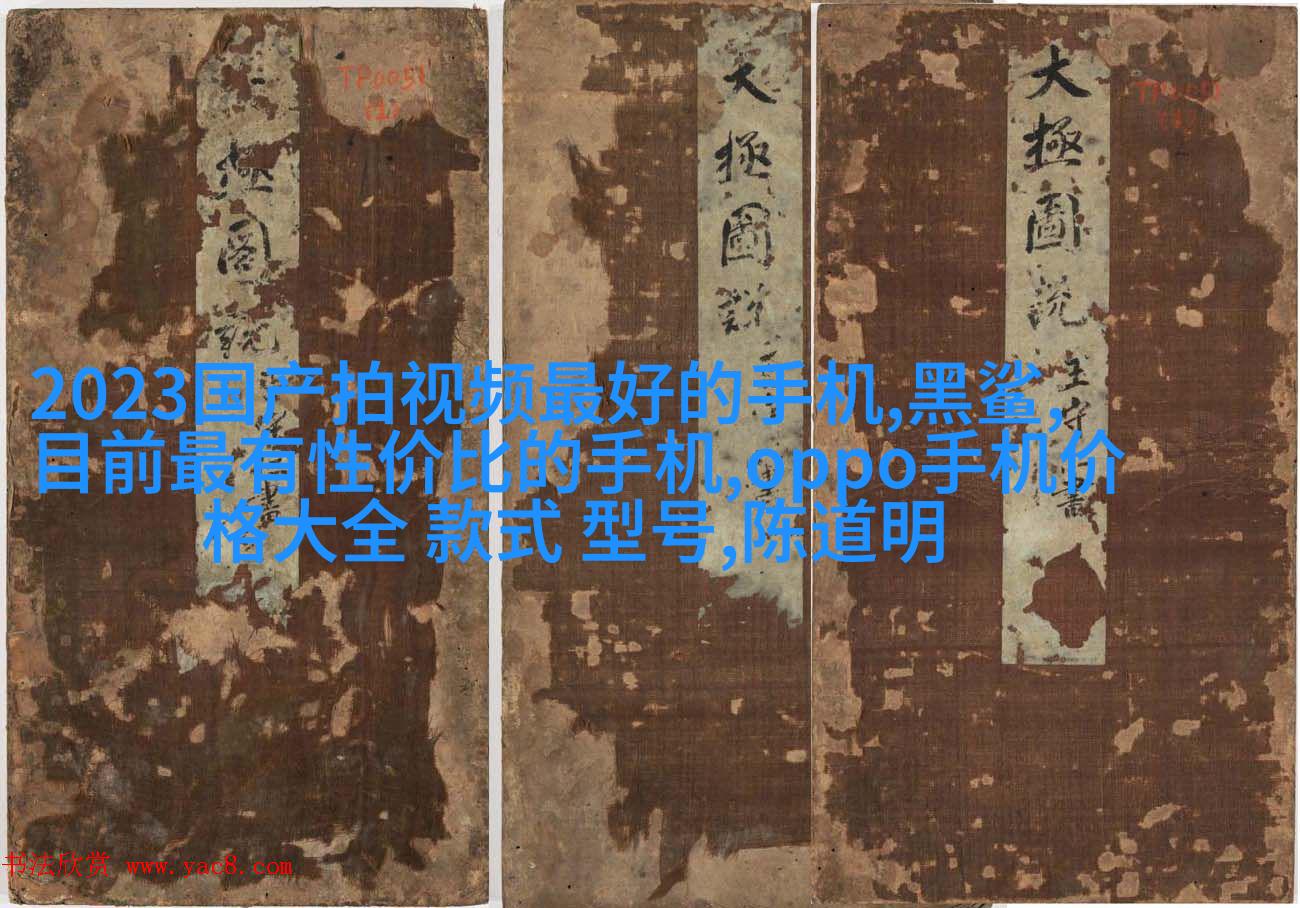 TP0051
(1)
極圖說
大極圖說
大極圖说
王守
畫
2023国产拍视频最好的手机,黑鲨,
目前最有性价比的手机,oppo手机价
格大全 款式 型号,陈道明
书法欣赏 www.yac8.com